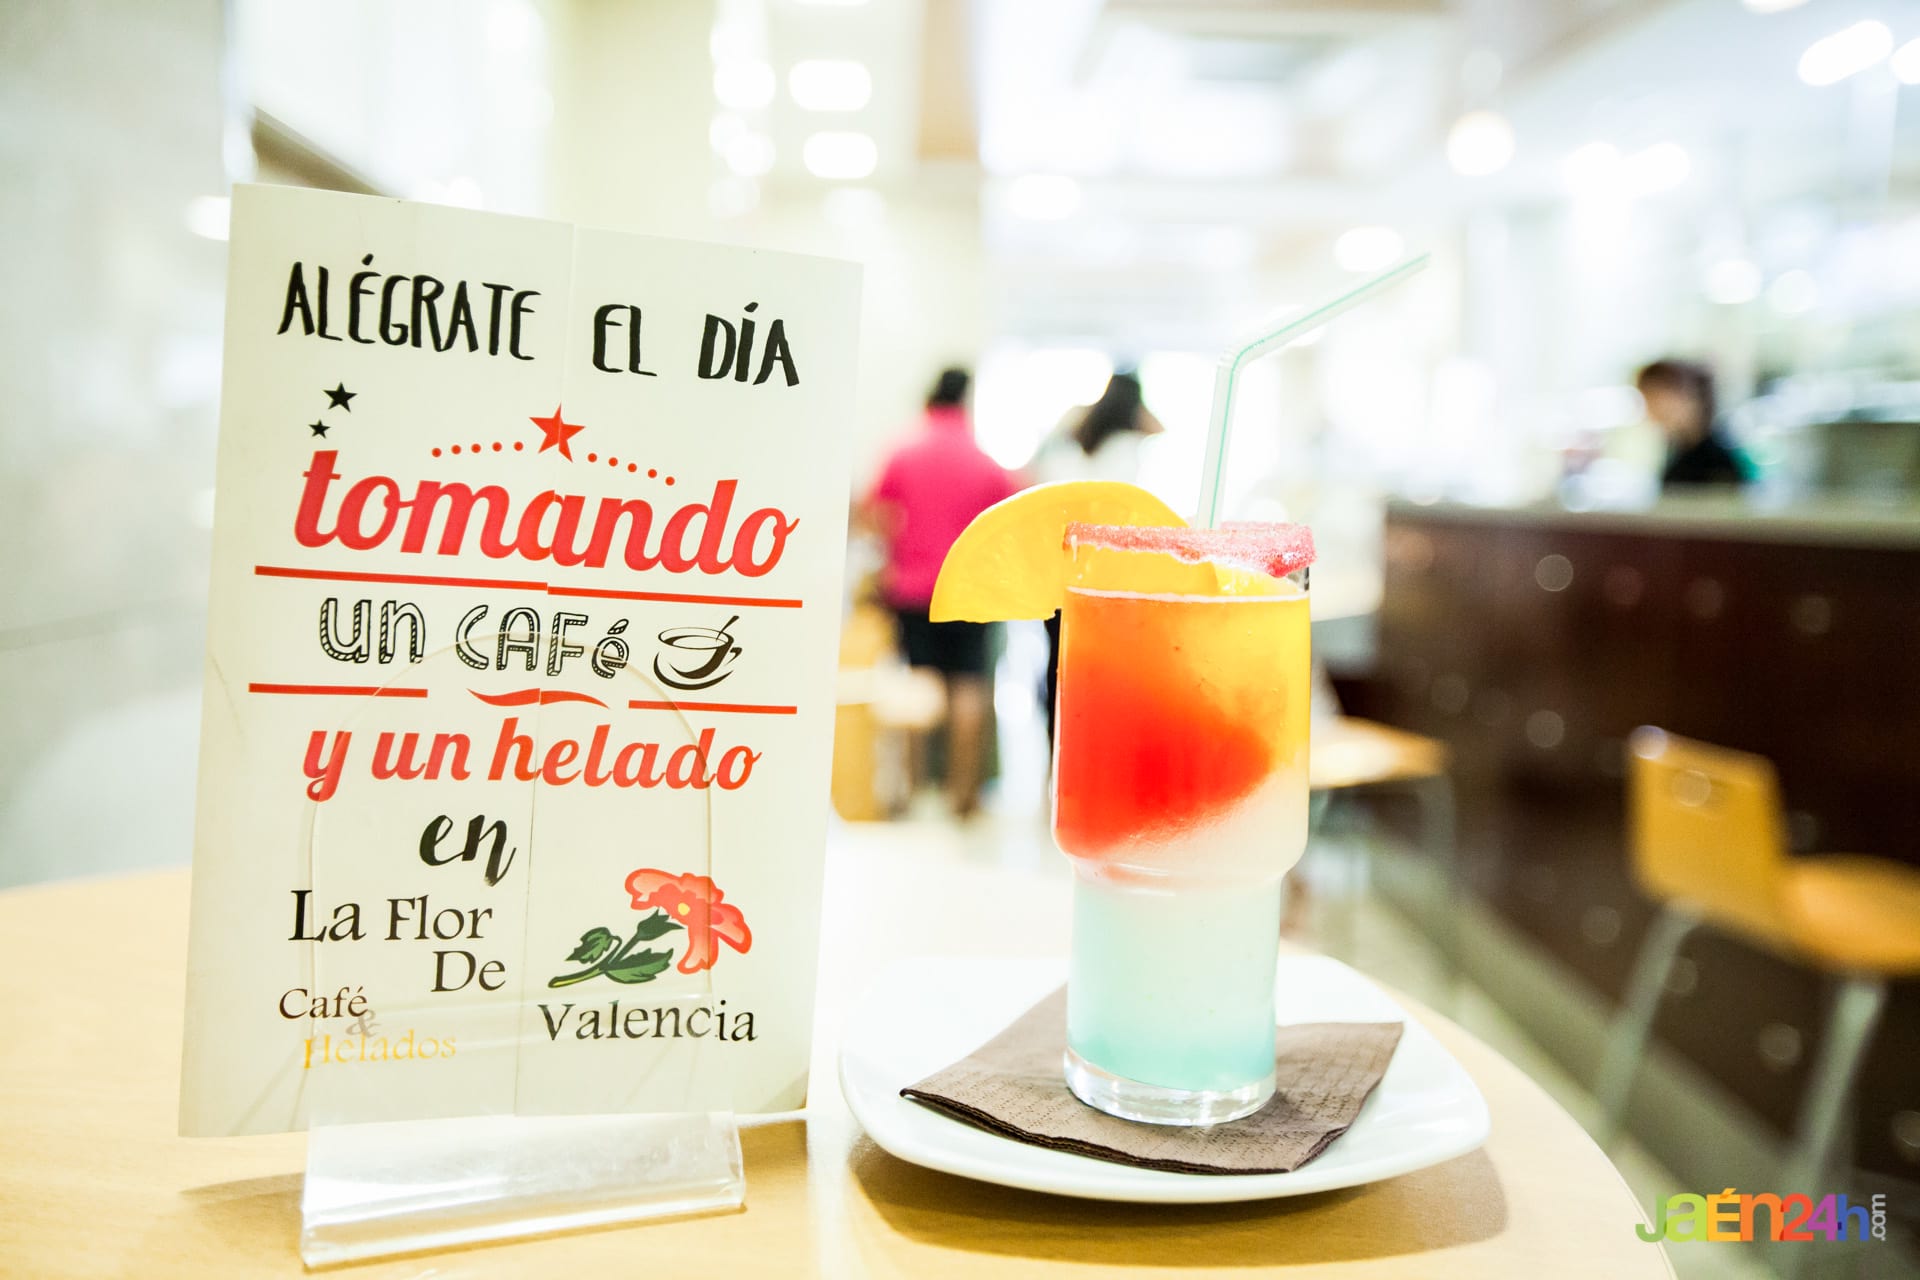 ALÉGRATE EL DÍA
tomando
un CAFé
y un helado
en
La Flor
De
Café
&
Helados
Valencia
Jaén24h.com